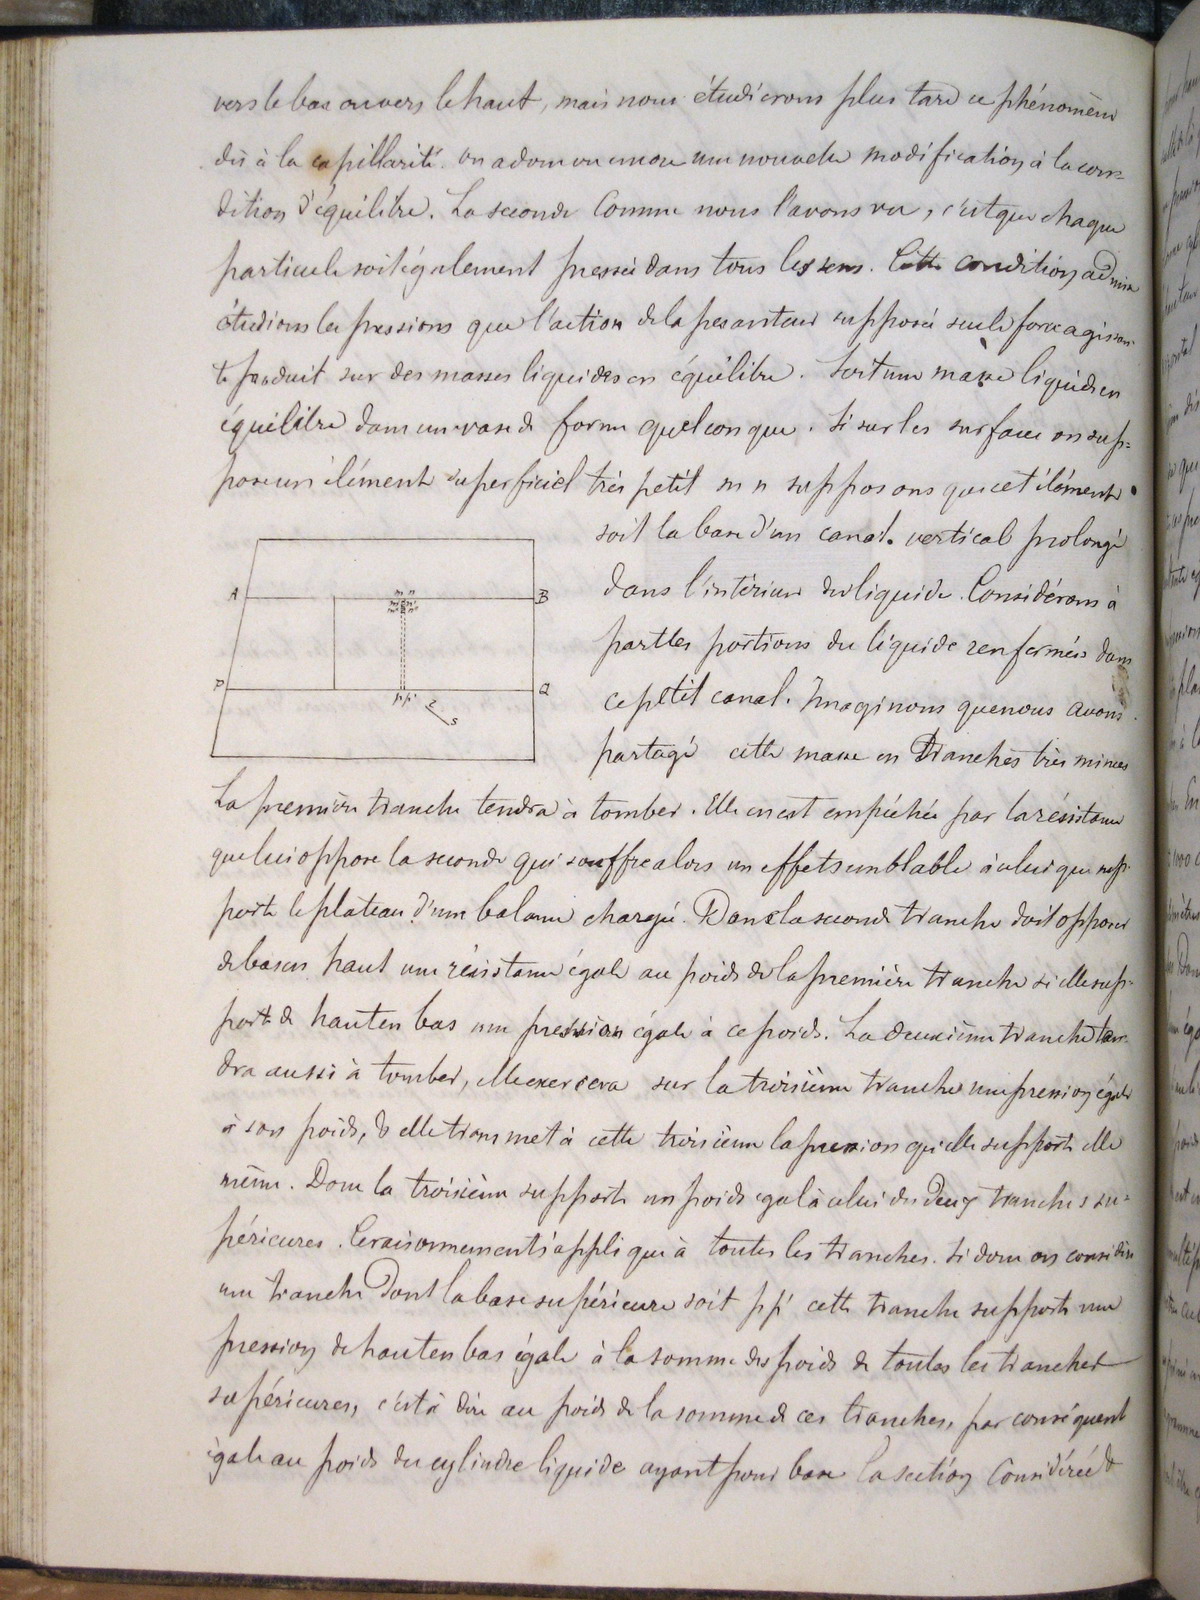 vers le bas ou vers le haut, mais nous étudierons plus tard ce phénomène
dû à la capillarité. on a donc encore une nouvelle modification à la con=
dition d'équilibre. La seconde comme nous l'avons vu, c'est que chaque
particule soit également pressée dans tous les sens. Cette condition admise
étudions les pressions que l'action de la pesanteur supposée seule force agissan-
te produit sur des masses liquides en équilibre. Soit une masse liquide en
équilibre dans un vase de forme quelconque. Si sur les surfaces on sup=
pose un élément superficiel très petit m n supposons que cet élément
soit la base d'un canal vertical prolongé
dans l'intérieur du liquide. Considérons à
part les portions du liquide renfermées dans
ce petit canal. Imaginons que nous avons
partagé cette masse en tranches très minces
A
B
m n
m' n'
m'' n''
P
Q
p p'
r
s
La première tranche tendra à tomber. Elle en est empêchée par la résistance
que lui oppose la seconde qui souffre alors un effet semblable à celui que sup-
porte le plateau d'une balance chargée. Dans la seconde tranche doit opposer
de bas en haut une résistance égale au poids de la première tranche si elle sup-
porte de haut en bas une pression égale à ce poids. La deuxième tranche ten-
dra aussi à tomber, elle exercera sur la troisième tranche une pression égale
à son poids, & elle transmet à cette troisième la pression qu'elle supporte elle
même. Donc la troisième supporte un poids égal à celui des deux tranches su=
périeures. Ce raisonnement s'applique à toutes les tranches. Si donc on considère
une tranche dont la base supérieure soit p p' cette tranche supporte une
pression de haut en bas égale à la somme des poids de toutes les tranches
supérieures, c'est à dire au poids de la somme de ces tranches, par conséquent
égale au poids du cylindre liquide ayant pour base la section considérée &